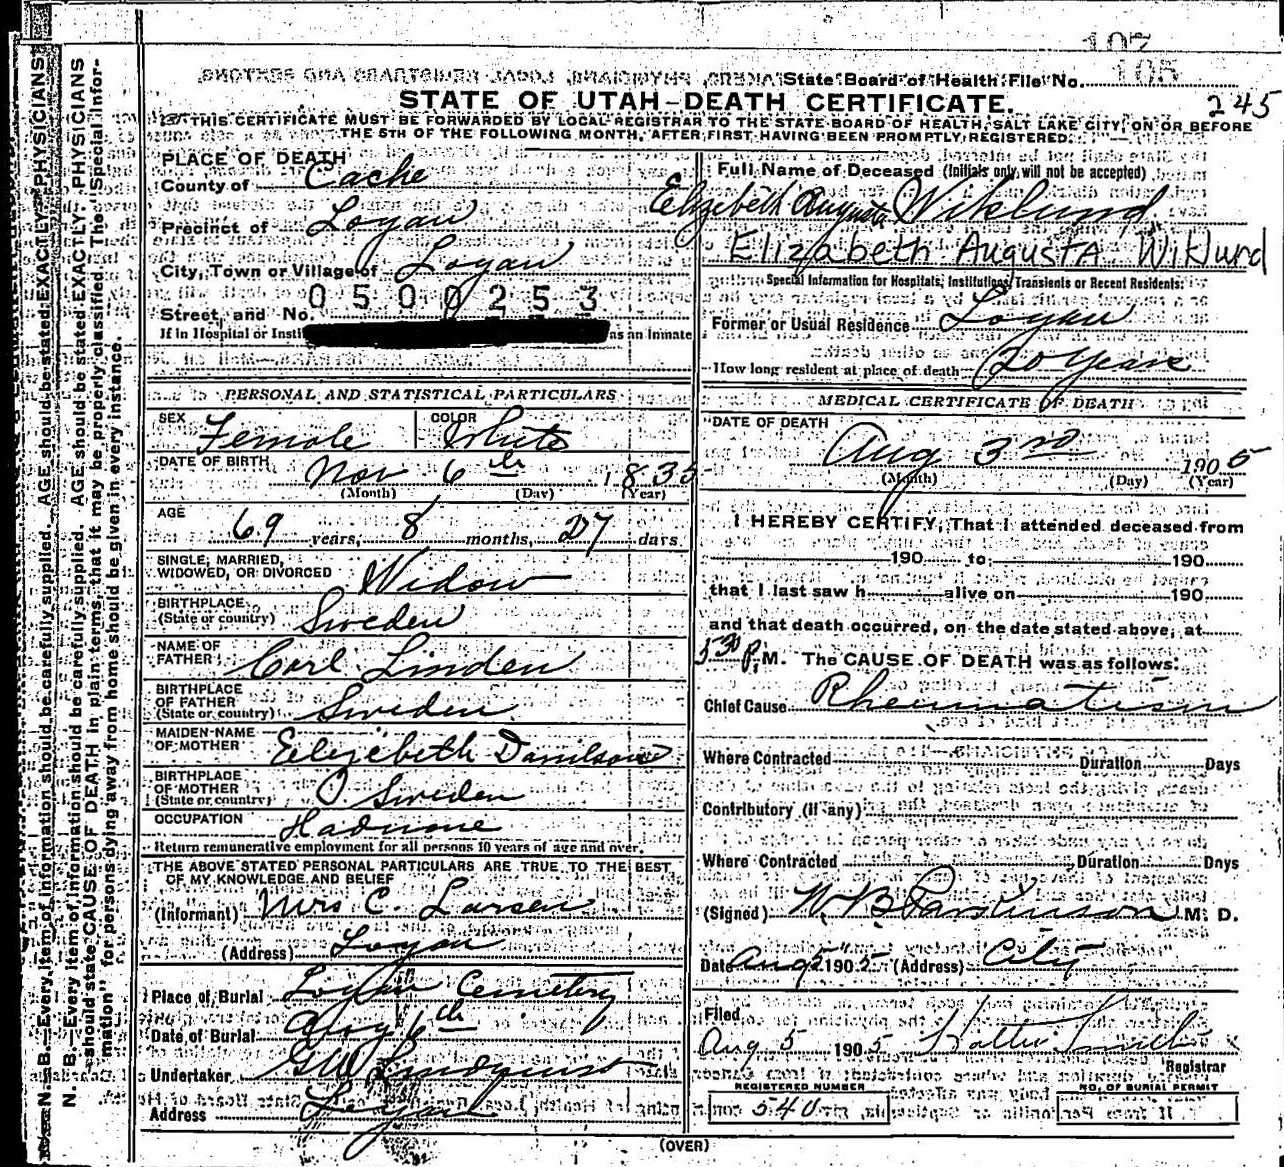 107
105
State Board of Health File No.
245
STATE OF UTAH—DEATH CERTIFICATE.
THIS CERTIFICATE MUST BE FORWARDED BY LOCAL REGISTRAR TO THE STATE BOARD OF HEALTH, SALT LAKE CITY, ON OR BEFORE
THE 5TH OF THE FOLLOWING MONTH, AFTER FIRST HAVING BEEN PROMPTLY REGISTERED.
N. B.—Every item of information should be carefully supplied. AGE should be stated EXACTLY. PHYSICIANS
N. B.—Every item of information should be carefully supplied. AGE should be stated EXACTLY. PHYSICIANS
should state CAUSE OF DEATH in plain terms, that it may be properly classified. The "Special Infor-
mation" for persons dying away from home should be given in every instance.
PLACE OF DEATH
County of Cache
Precinct of Logan
City, Town or Village of Logan
0500253
Street, and No.
If in Hospital or Insti as an Inmate
PERSONAL AND STATISTICAL PARTICULARS
SEX Female COLOR White
DATE OF BIRTH Nov 6th 1835
(Month) (Day) (Year)
AGE 69 years, 8 months, 27 days
SINGLE, MARRIED,
WIDOWED, OR DIVORCED Widow
BIRTHPLACE
(State or country) Sweden
NAME OF
FATHER Carl Linden
BIRTHPLACE
OF FATHER
(State or country) Sweden
MAIDEN NAME
OF MOTHER Elizebeth Danilson
BIRTHPLACE
OF MOTHER
(State or country) Sweden
OCCUPATION
Return remunerative employment for all persons 10 years of age and over.
THE ABOVE STATED PERSONAL PARTICULARS ARE TRUE TO THE BEST
OF MY KNOWLEDGE AND BELIEF
(Informant) Mrs C. Larsen
(Address) Logan
Place of Burial Logan Cemetery
Date of Burial Aug 6th
Undertaker GW Lindquist
Address Logan
Full Name of Deceased (Initials only will not be accepted)
Elizebeth Augusta Wiklund
Elizabeth Augusta Wiklund
Special Information for Hospitals, Institutions, Transients or Recent Residents:
Former or Usual Residence Logan
How long resident at place of death 20 Years
MEDICAL CERTIFICATE OF DEATH
DATE OF DEATH
Aug 3rd 1905
(Month) (Day) (Year)
I HEREBY CERTIFY, That I attended deceased from
190 to 190
that I last saw h alive on 190
and that death occurred, on the date stated above, at
5 30 P.M. The CAUSE OF DEATH was as follows:
Chief Cause Rheumatism
Where Contracted Duration Days
Contributory (if any)
Where Contracted Duration Days
(Signed) W. B. Parkinson M. D.
Date Aug 5 1905 (Address) City
Filed
Aug 5 1905 Walter Smith
Registrar
REGISTERED NUMBER
540
NO. OF BURIAL PERMIT
(OVER)